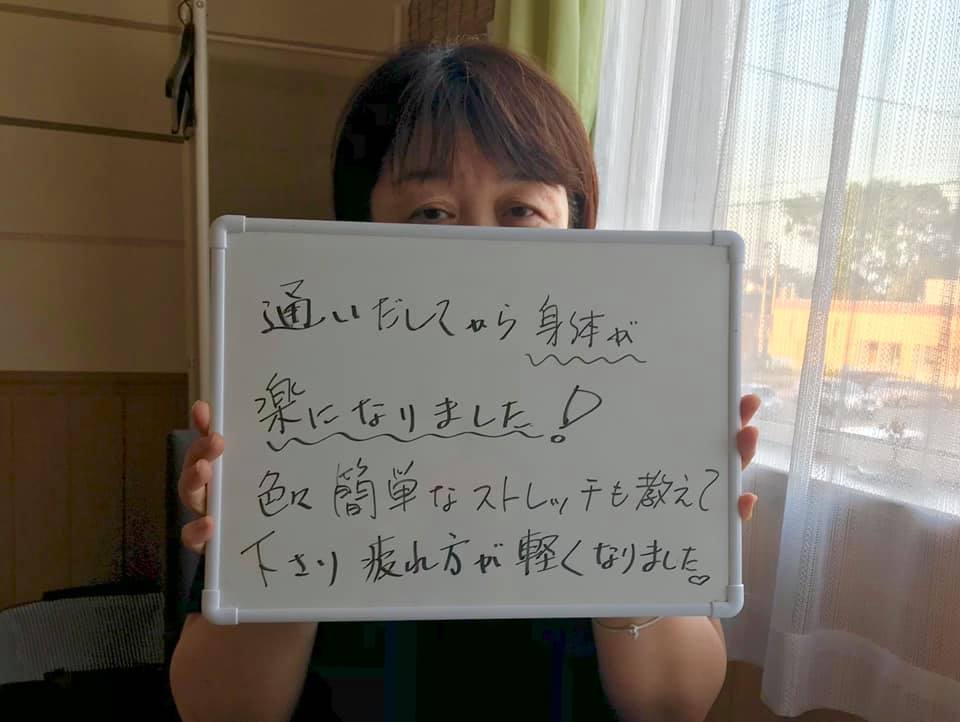 通いだしてから身体が
楽になりました!
色々簡単なストレッチも教えて
下さり疲れ方が軽くなりました♡